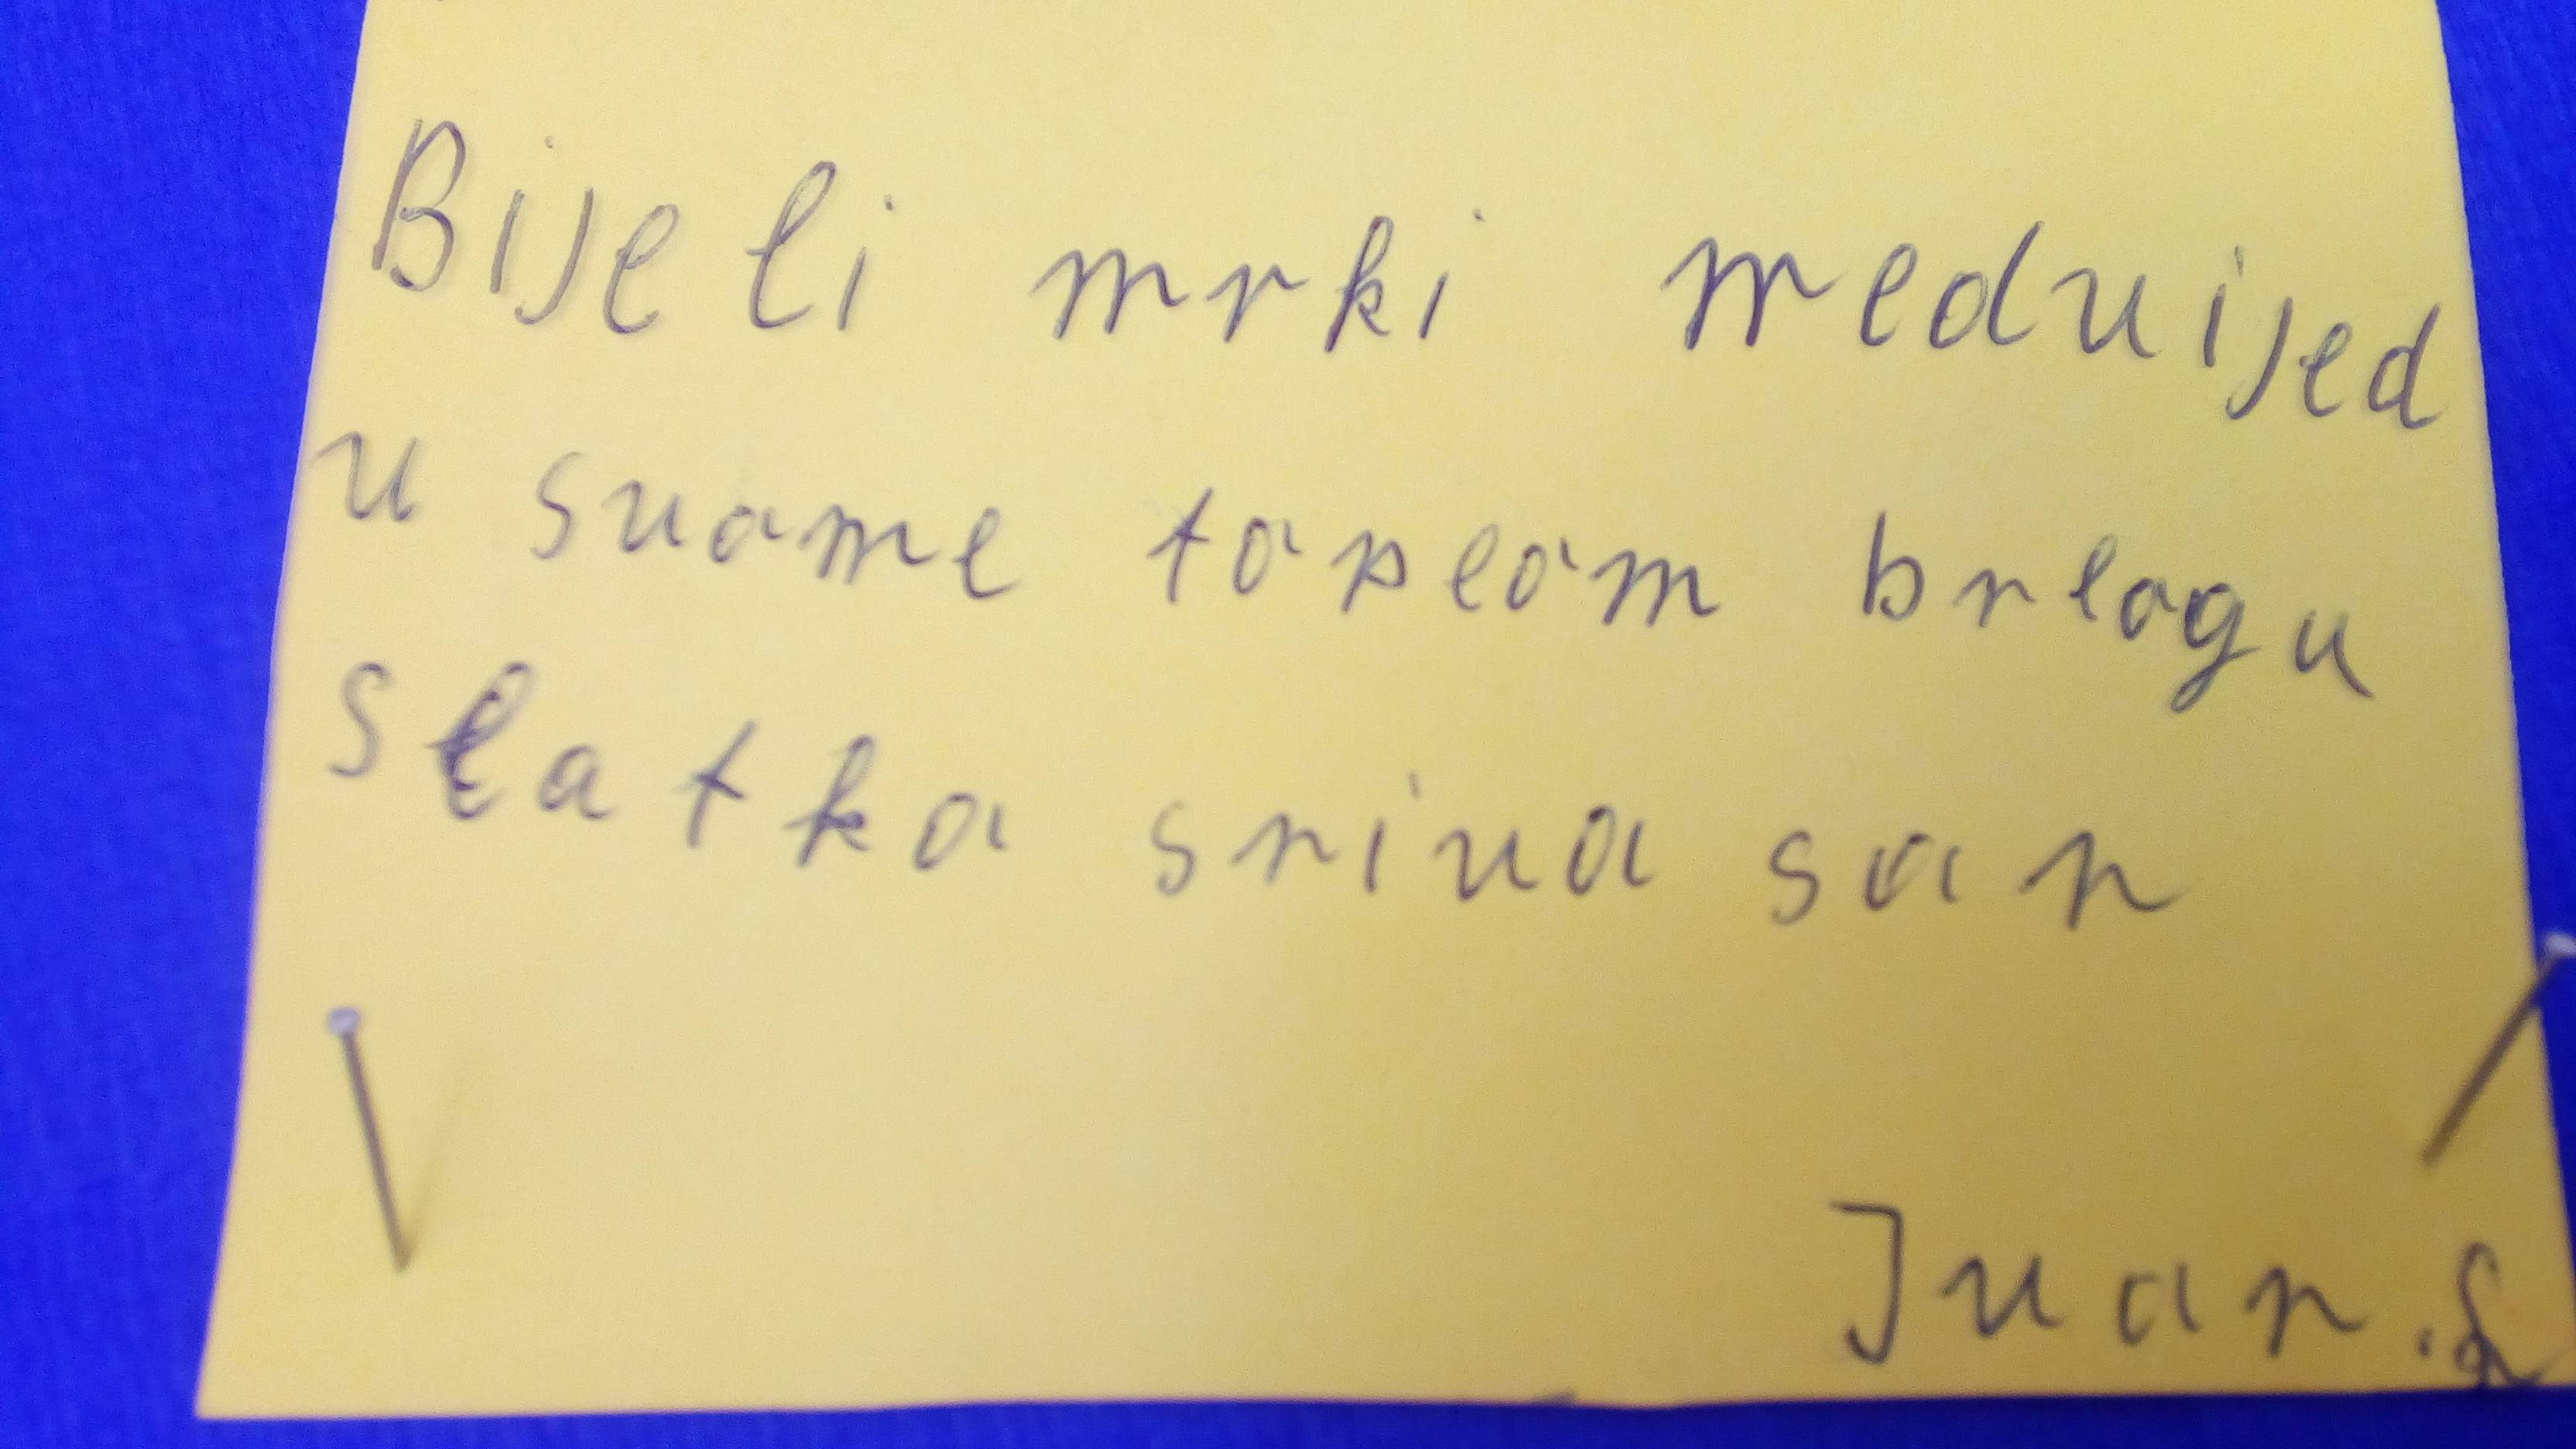 Bijeli mrki medvijed
u svome toplom brlogu
slatka sniva san
Ivan.L